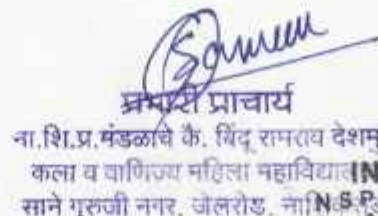 प्रभारी प्राचार्य
ना.शि.प्र.मंडळाचे कै. बिंदू रामराव देशमु
कला व वाणिज्य महिला महाविद्याल IN
साने गुरुजी नगर, जेलरोड, नाशि N.S.P.